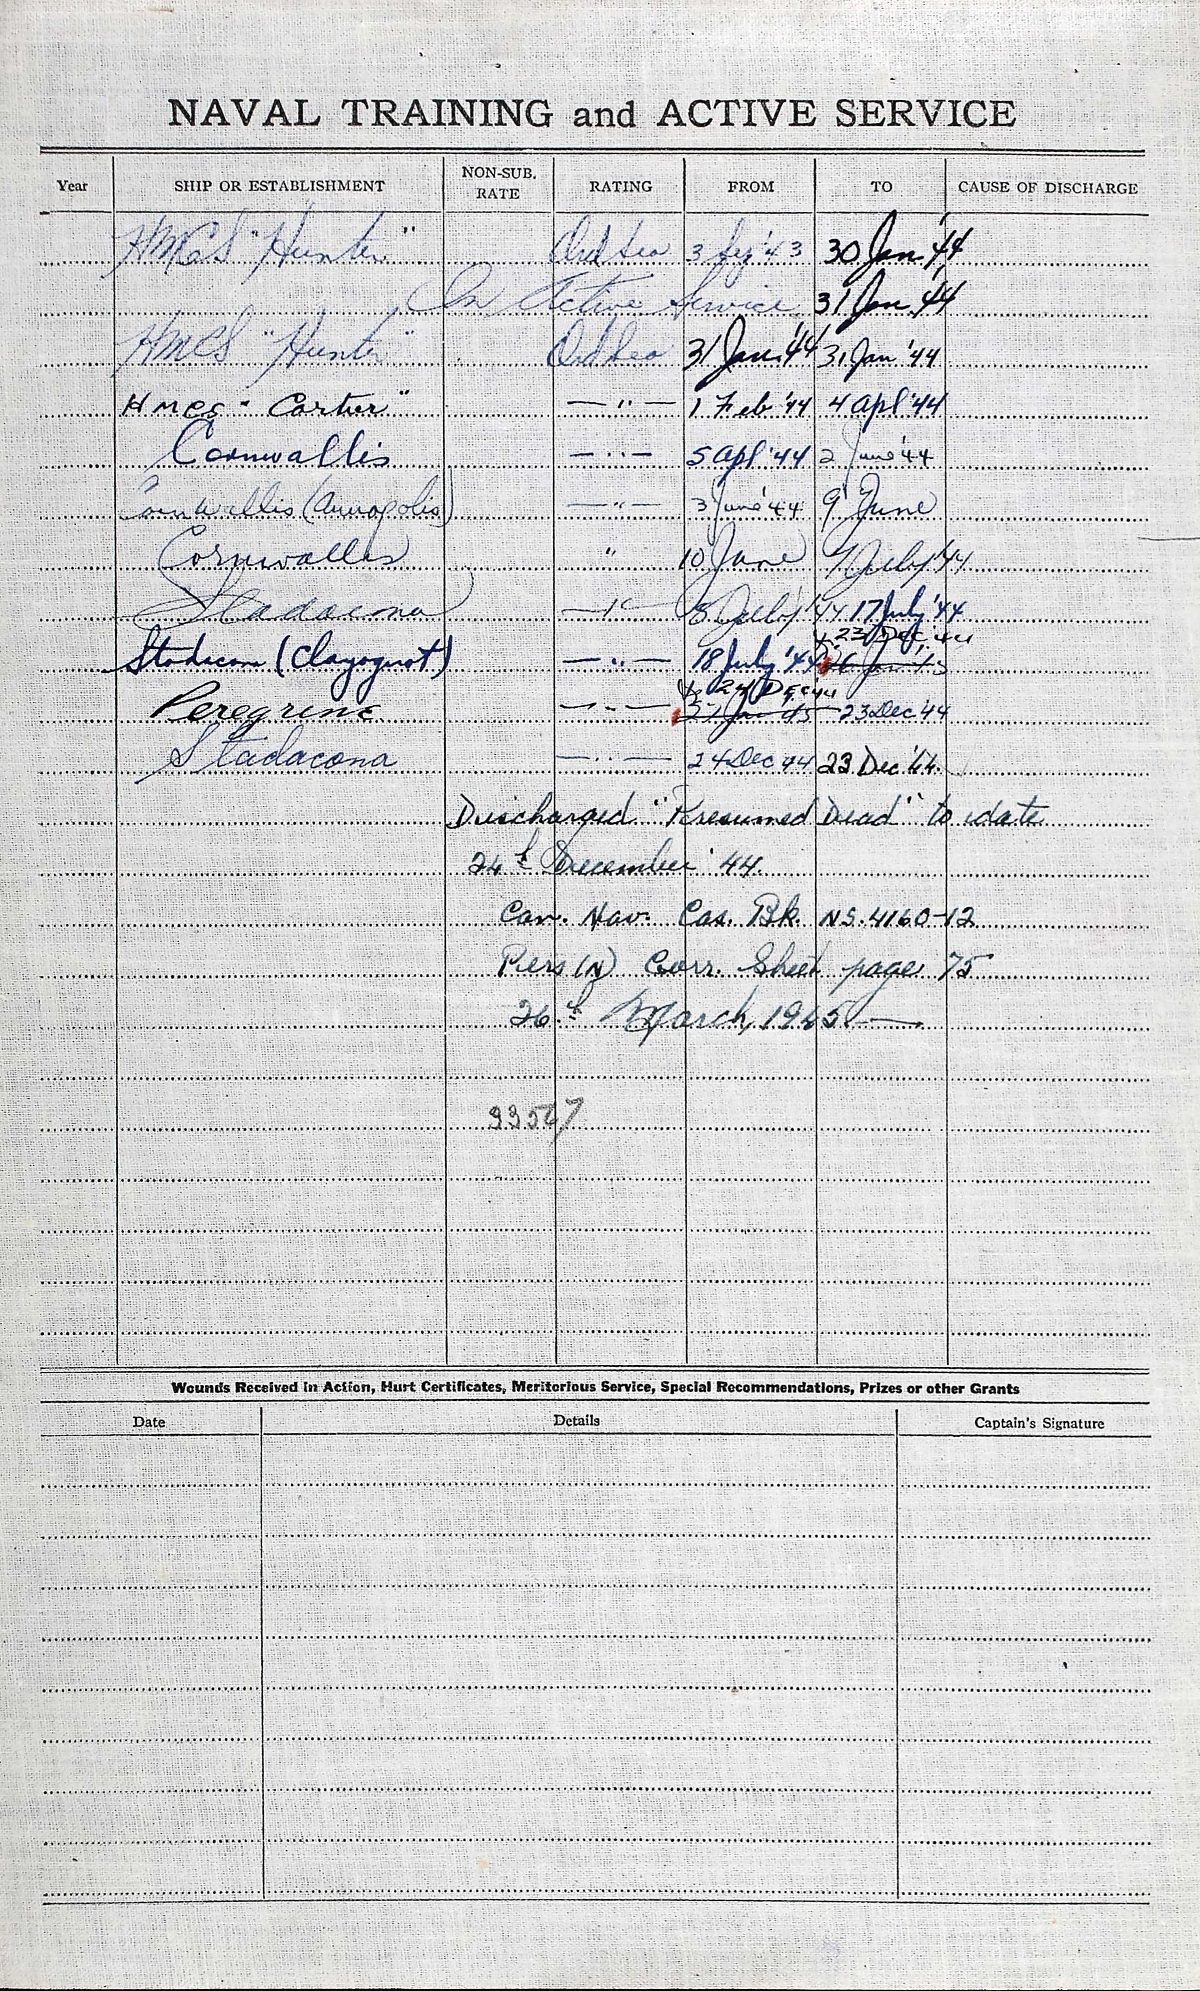 NAVAL TRAINING and ACTIVE SERVICE
Year SHIP OR ESTABLISHMENT NON-SUB. RATE RATING FROM TO CAUSE OF DISCHARGE
HMCS "Hunter" Ord Sea 3 '43 30 Jan '44
On Active Service 31 Jan '44
HMCS "Hunter" Ord Sea 31 Jan '44 31 Jan '44
HMCS "Cartier" — " — 1 Feb '44 4 Apl '44
Cornwallis — " — 5 Apl '44 2 June '44
Cornwallis (Annapolis) — " — 3 June '44 9 June
Cornwallis " 10 June 7 July '44
Stadacona — " — 8 July '44 17 July '44
23 Dec 44
Stadacona (Clayoquot) — " — 18 July '44
24 Dec '44
Peregrine — " — 23 Dec '44
Stadacona — " — 24 Dec 44 23 Dec '44
Discharged "Presumed Dead" to date
24th December '44.
Can. Nav. Cas. Bk. NS. 4160-12
Pers (N) Corr. Sheet page 75
26th March, 1945 —
93567
Wounds Received in Action, Hurt Certificates, Meritorious Service, Special Recommendations, Prizes or other Grants
Date Details Captain's Signature